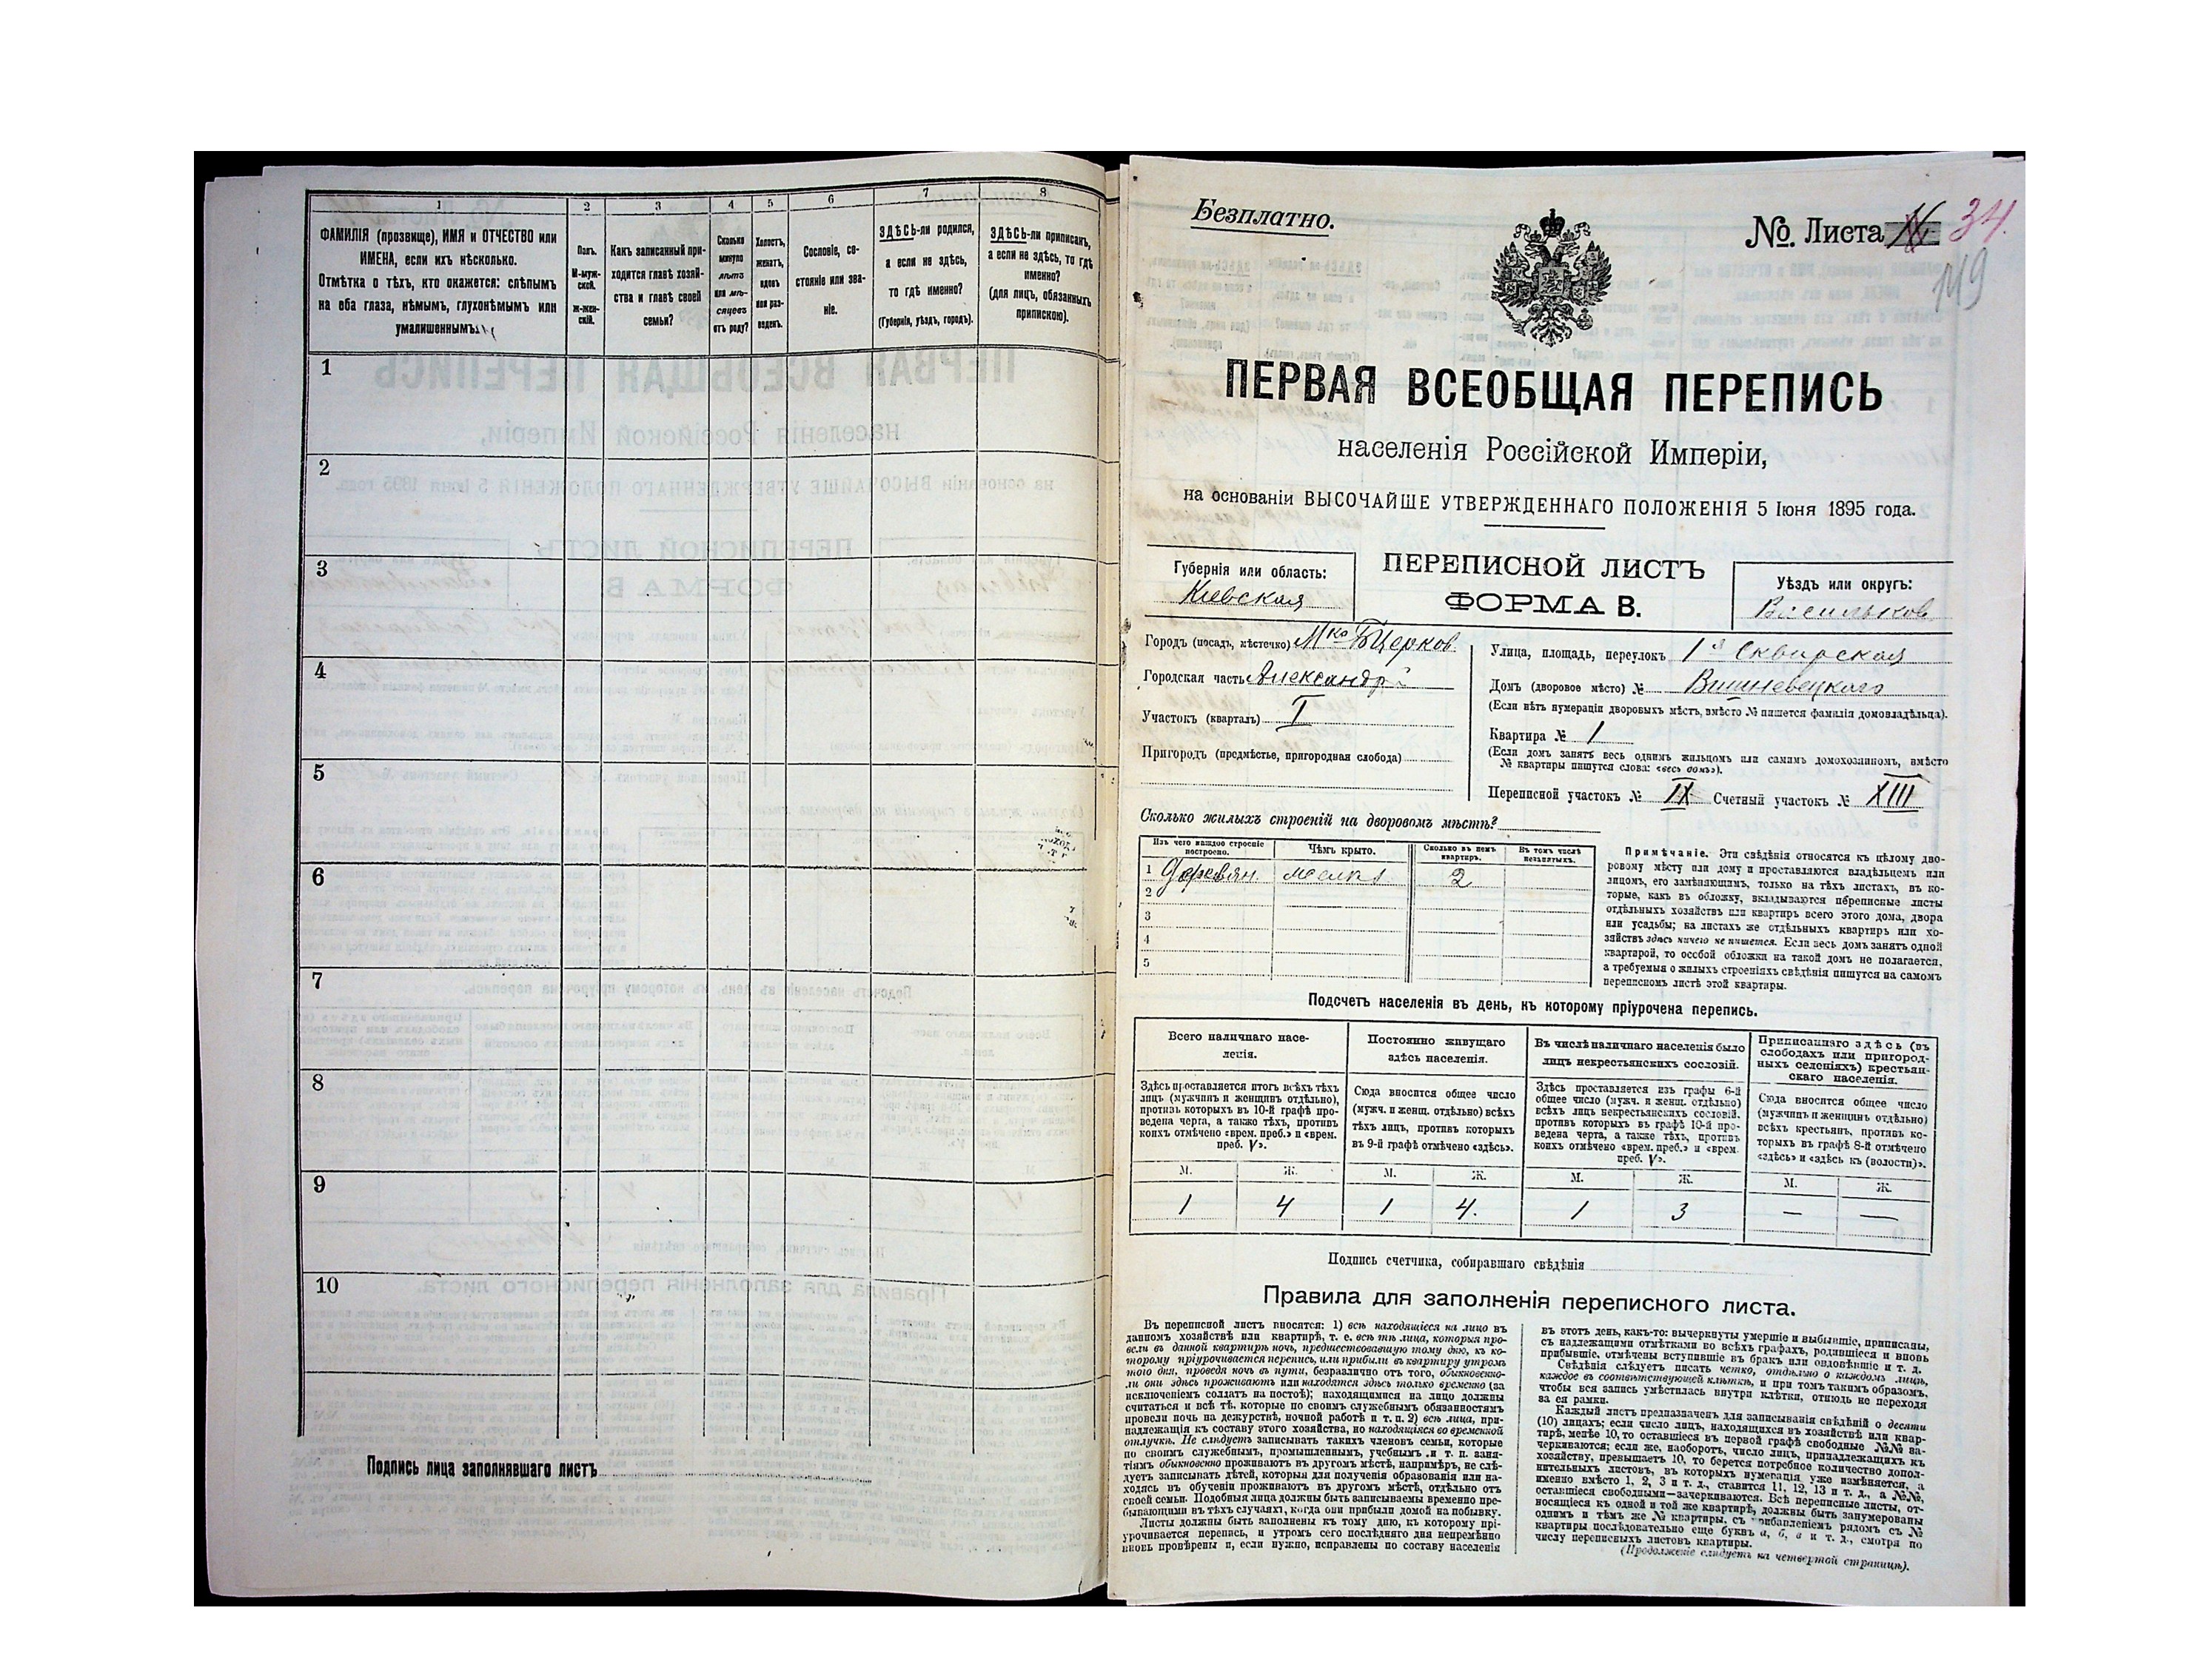 1 2 3 4 5 6 7 8
ФАМИЛІЯ (прозвище), ИМЯ и ОТЧЕСТВО или
ИМЕНА, если ихъ нѣсколько.
Отмѣтка о тѣхъ, кто окажется: слѣпымъ
на оба глаза, нѣмымъ, глухонѣмымъ или
умалишеннымъ.
Полъ.
М-муж-
ской.
Ж-жен-
скій.
Какъ записанный при-
ходится главѣ хозяй-
ства и главѣ своей
семьи?
Сколько
минуло
лѣтъ
или мѣ-
сяцевъ
отъ роду?
Холостъ,
женатъ,
вдовъ
или раз-
веденъ.
Сословіе, со-
стояніе или зва-
ніе.
ЗДѢСЬ-ли родился,
а если не здѣсь,
то гдѣ именно?
(Губернія, уѣздъ, городъ).
ЗДѢСЬ-ли приписанъ,
а если не здѣсь, то гдѣ
именно?
(для лицъ, обязанныхъ
припискою).
1
2
3
4
5
6
7
8
9
10
Подпись лица заполнявшаго листъ
Безплатно.
№. Листа 34.
149
ПЕРВАЯ ВСЕОБЩАЯ ПЕРЕПИСЬ
населенія Россійской Имперіи,
на основаніи ВЫСОЧАЙШЕ УТВЕРЖДЕННАГО ПОЛОЖЕНІЯ 5 Іюня 1895 года.
Губернія или область:
Кіевская
ПЕРЕПИСНОЙ ЛИСТЪ
ФОРМА В.
Уѣздъ или округъ:
Васильков
Городъ (посадъ, мѣстечко) Мко БЦерков
Городская часть Александр
Участокъ (кварталъ) I
Пригородъ (предмѣстье, пригородная слобода)
Улица, площадь, переулокъ 1я Сквирская
Домъ (дворовое мѣсто) № Вишневецкого
(Если нѣтъ нумераціи дворовыхъ мѣстъ, вмѣсто № пишется фамилія домовладѣльца).
Квартира № 1
(Если домъ занятъ весь однимъ жильцомъ или самимъ домохозяиномъ, вмѣсто
№ квартиры пишутся слова: «весь домъ»).
Переписной участокъ № IX Счетный участокъ № XIII
Сколько жилыхъ строеній на дворовомъ мѣстѣ?
Изъ чего каждое строеніе
построено.
Чѣмъ крыто.
Сколько въ немъ
квартиръ.
Въ томъ числѣ
незанятыхъ.
1 Деревян. 2
2
3
4
5
Примѣчаніе. Эти свѣдѣнія относятся къ цѣлому дво-
ровому мѣсту или дому и проставляются владѣльцемъ или
лицомъ, его замѣняющимъ, только на тѣхъ листахъ, въ ко-
торые, какъ въ обложку, вкладываются переписные листы
отдѣльныхъ хозяйствъ или квартиръ всего этого дома, двора
или усадьбы; на листахъ же отдѣльныхъ квартиръ или хо-
зяйствъ здѣсь ничего не пишется. Если весь домъ занятъ одной
квартирой, то особой обложки на такой домъ не полагается,
а требуемыя о жилыхъ строеніяхъ свѣдѣнія пишутся на самомъ
переписномъ листѣ этой квартиры.
Подсчетъ населенія въ день, къ которому пріурочена перепись.
Всего наличнаго насе-
ленія.
Здѣсь проставляется итогъ всѣхъ тѣхъ
лицъ (мужчинъ и женщинъ отдѣльно),
противъ которыхъ въ 10-й графѣ про-
ведена черта, а также тѣхъ, противъ
коихъ отмѣчено «врем. преб.» и «врем.
преб. V».
М. Ж.
1 4
Постоянно живущаго
здѣсь населенія.
Сюда вносится общее число
(мужч. и женщ. отдѣльно) всѣхъ
тѣхъ лицъ, противъ которыхъ
въ 9-й графѣ отмѣчено «здѣсь».
М. Ж.
1 4.
Въ числѣ наличнаго населенія было
лицъ некрестьянскихъ сословій.
Здѣсь проставляется изъ графы 6-й
общее число (мужч. и женщ. отдѣльно)
всѣхъ лицъ некрестьянскихъ сословій,
противъ которыхъ въ графѣ 10-й про-
ведена черта, а также тѣхъ, противъ
коихъ отмѣчено «врем. преб.» и «врем.
преб. V».
М. Ж.
1 3
Приписаннаго здѣсь (въ
слободахъ или пригород-
ныхъ селеніяхъ) крестьян-
скаго населенія.
Сюда вносится общее число
(мужчинъ и женщинъ отдѣльно)
всѣхъ крестьянъ, противъ ко-
торыхъ въ графѣ 8-й отмѣчено
«здѣсь» и «здѣсь къ (волости)».
М. Ж.
— —
Подпись счетчика, собиравшаго свѣдѣнія
Правила для заполненія переписного листа.
Въ переписной листъ вносятся: 1) всѣ находящіеся на лицо въ
данномъ хозяйствѣ или квартирѣ, т. е. всѣ тѣ лица, которыя про-
вели въ данной квартирѣ ночь, предшествовавшую тому дню, къ ко-
торому пріурочивается перепись, или прибыли въ квартиру утромъ
того дня, проведя ночь въ пути, безразлично отъ того, обыкновенно-
ли они здѣсь проживаютъ или находятся здѣсь только временно (за
исключеніемъ солдатъ на постоѣ); находящимися на лицо должны
считаться и всѣ тѣ, которые по своимъ служебнымъ обязанностямъ
провели ночь на дежурствѣ, ночной работѣ и т. п. 2) всѣ лица, при-
надлежащія къ составу этого хозяйства, но находящіяся во временной
отлучкѣ. Не слѣдуетъ записывать такихъ членовъ семьи, которые
по своимъ служебнымъ, промышленнымъ, учебнымъ и т. п. заня-
тіямъ обыкновенно проживаютъ въ другомъ мѣстѣ, напримѣръ, не слѣ-
дуетъ записывать дѣтей, которыя для полученія образованія или на-
ходясь въ обученіи проживаютъ въ другомъ мѣстѣ, отдѣльно отъ
своей семьи. Подобныя лица должны быть записываемы временно пре-
бывающими въ тѣхъ случаяхъ, когда они прибыли домой на побывку.
Листы должны быть заполнены къ тому дню, къ которому прі-
урочивается перепись, и утромъ сего послѣдняго дня непремѣнно
вновь провѣрены и, если нужно, исправлены по составу населенія
въ этотъ день, какъ-то: вычеркнуты умершіе и выбывшіе, приписаны,
съ надлежащими отмѣтками во всѣхъ графахъ, родившіеся и вновь
прибывшіе, отмѣчены вступившіе въ бракъ или овдовѣвшіе и т. д.
Свѣдѣнія слѣдуетъ писать четко, отдѣльно о каждомъ лицѣ,
каждое въ соотвѣтствующей клѣткѣ, и при томъ такимъ образомъ,
чтобы вся запись умѣстилась внутри клѣтки, отнюдь не переходя
за ея рамки.
Каждый листъ предназначенъ для записыванія свѣдѣній о десяти
(10) лицахъ; если число лицъ, находящихся въ хозяйствѣ или квар-
тирѣ, менѣе 10, то оставшіеся въ первой графѣ свободные №№ за-
черкиваются; если же, наоборотъ, число лицъ, принадлежащихъ къ
хозяйству, превышаетъ 10, то берется потребное количество допол-
нительныхъ листовъ, въ которыхъ нумерація уже измѣняется, а
именно вмѣсто 1, 2, 3 и т. д., ставится 11, 12, 13 и т. д., а №№,
оставшіеся свободными—зачеркиваются. Всѣ переписные листы, от-
носящіеся къ одной и той же квартирѣ, должны быть занумерованы
однимъ и тѣмъ же № квартиры, съ прибавленіемъ рядомъ съ №
квартиры послѣдовательно еще буквъ а, б, в и т. д., смотря по
числу переписныхъ листовъ квартиры.
(Продолженіе слѣдуетъ на четвертой страницѣ).